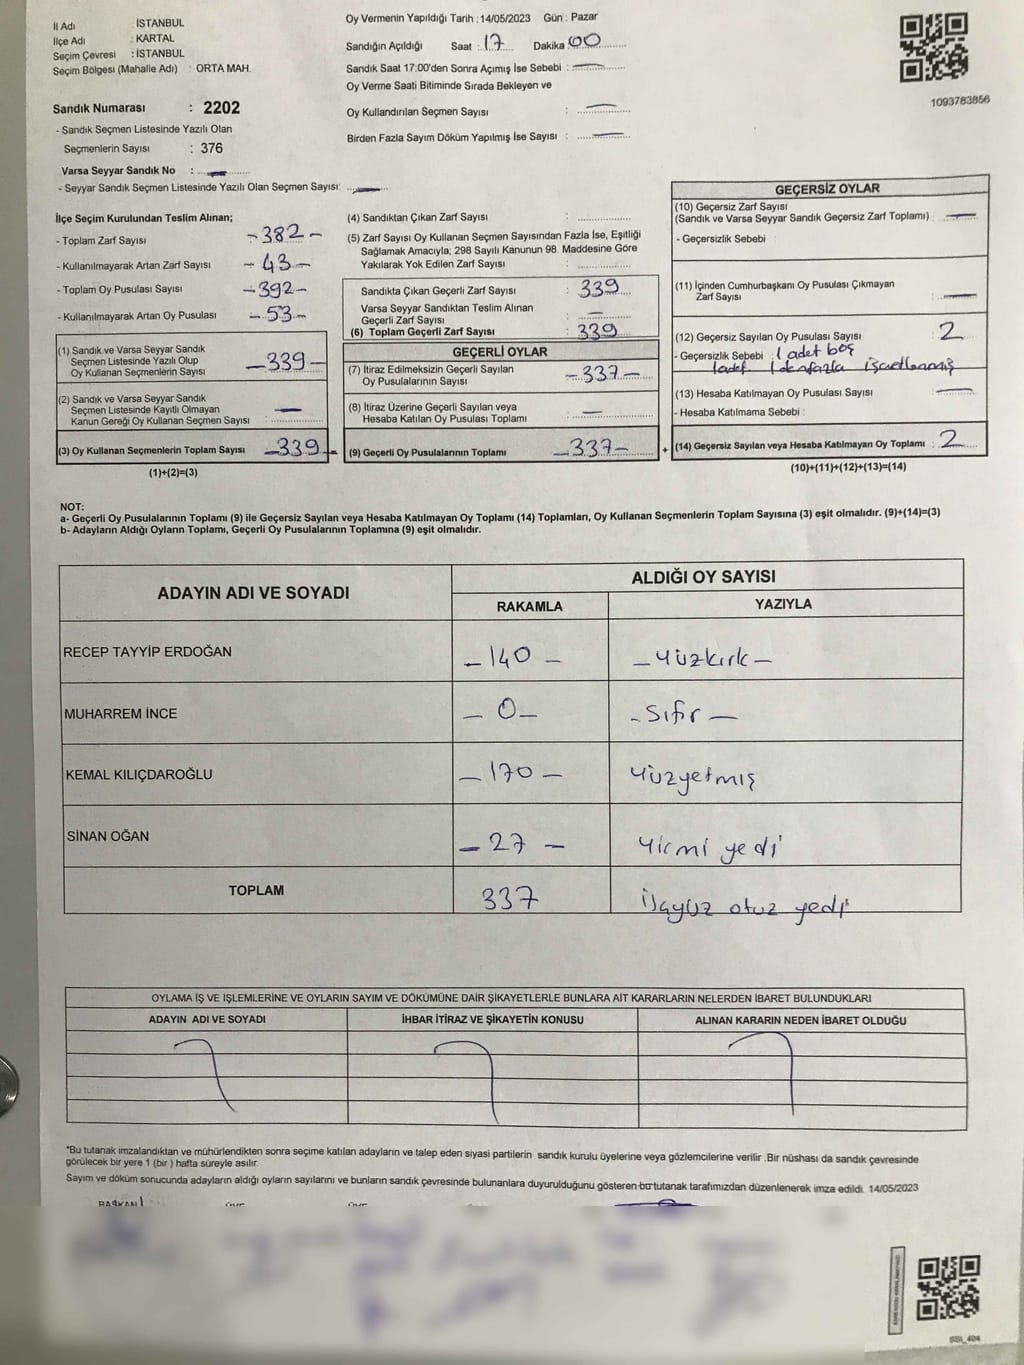 İl Adı : İSTANBUL
İlçe Adı : KARTAL
Seçim Çevresi : İSTANBUL
Seçim Bölgesi (Mahalle Adı) : ORTA MAH.
Sandık Numarası : 2202
- Sandık Seçmen Listesinde Yazılı Olan
Seçmenlerin Sayısı : 376
Varsa Seyyar Sandık No : —
- Seyyar Sandık Seçmen Listesinde Yazılı Olan Seçmen Sayısı: —
Oy Vermenin Yapıldığı Tarih : 14/05/2023 Gün : Pazar
Sandığın Açıldığı Saat : 17 Dakika 00
Sandık Saat 17:00'den Sonra Açımış İse Sebebi : —
Oy Verme Saati Bitiminde Sırada Bekleyen ve
Oy Kullandırılan Seçmen Sayısı : —
Birden Fazla Sayım Döküm Yapılmış İse Sayısı : —
1093783856
İlçe Seçim Kurulundan Teslim Alınan;
- Toplam Zarf Sayısı - 382 -
- Kullanılmayarak Artan Zarf Sayısı - 43 -
- Toplam Oy Pusulası Sayısı - 392 -
- Kullanılmayarak Artan Oy Pusulası - 53 -
(1) Sandık ve Varsa Seyyar Sandık
Seçmen Listesinde Yazılı Olup
Oy Kullanan Seçmenlerin Sayısı - 339 -
(2) Sandık ve Varsa Seyyar Sandık
Seçmen Listesinde Kayıtlı Olmayan
Kanun Gereği Oy Kullanan Seçmen Sayısı : —
(3) Oy Kullanan Seçmenlerin Toplam Sayısı - 339 -
(1)+(2)=(3)
(4) Sandıktan Çıkan Zarf Sayısı :
(5) Zarf Sayısı Oy Kullanan Seçmen Sayısından Fazla İse, Eşitliği
Sağlamak Amacıyla; 298 Sayılı Kanunun 98. Maddesine Göre
Yakılarak Yok Edilen Zarf Sayısı :
Sandıkta Çıkan Geçerli Zarf Sayısı : 339
Varsa Seyyar Sandıktan Teslim Alınan
Geçerli Zarf Sayısı : —
(6) Toplam Geçerli Zarf Sayısı : 339
GEÇERLİ OYLAR
(7) İtiraz Edilmeksizin Geçerli Sayılan
Oy Pusulalarının Sayısı - 337 -
(8) İtiraz Üzerine Geçerli Sayılan veya
Hesaba Katılan Oy Pusulası Toplamı : —
(9) Geçerli Oy Pusulalarının Toplamı - 337 -
+
GEÇERSİZ OYLAR
(10) Geçersiz Zarf Sayısı
(Sandık ve Varsa Seyyar Sandık Geçersiz Zarf Toplamı) : —
- Geçersizlik Sebebi :
(11) İçinden Cumhurbaşkanı Oy Pusulası Çıkmayan
Zarf Sayısı : —
(12) Geçersiz Sayılan Oy Pusulası Sayısı : 2
- Geçersizlik Sebebi : 1 adet boş
1 adet 1 den fazla işaretlenmiş
(13) Hesaba Katılmayan Oy Pusulası Sayısı : —
- Hesaba Katılmama Sebebi :
(14) Geçersiz Sayılan veya Hesaba Katılmayan Oy Toplamı : 2
(10)+(11)+(12)+(13)=(14)
NOT:
a- Geçerli Oy Pusulalarının Toplamı (9) ile Geçersiz Sayılan veya Hesaba Katılmayan Oy Toplamı (14) Toplamları, Oy Kullanan Seçmenlerin Toplam Sayısına (3) eşit olmalıdır. (9)+(14)=(3)
b- Adayların Aldığı Oyların Toplamı, Geçerli Oy Pusulalarının Toplamına (9) eşit olmalıdır.
ADAYIN ADI VE SOYADI
ALDIĞI OY SAYISI
RAKAMLA YAZIYLA
RECEP TAYYİP ERDOĞAN - 140 - - Yüzkırk -
MUHARREM İNCE - 0 - - Sıfır -
KEMAL KILIÇDAROĞLU - 170 - Yüzyetmiş
SİNAN OĞAN - 27 - Yirmi yedi
TOPLAM 337 üçyüz otuz yedi
OYLAMA İŞ VE İŞLEMLERİNE VE OYLARIN SAYIM VE DÖKÜMÜNE DAİR ŞİKAYETLERLE BUNLARA AİT KARARLARIN NELERDEN İBARET BULUNDUKLARI
ADAYIN ADI VE SOYADI İHBAR İTİRAZ VE ŞİKAYETİN KONUSU ALINAN KARARIN NEDEN İBARET OLDUĞU
*Bu tutanak imzalandıktan ve mühürlendikten sonra seçime katılan adayların ve talep eden siyasi partilerin sandık kurulu üyelerine veya gözlemcilerine verilir .Bir nüshası da sandık çevresinde
görülecek bir yere 1 (bir ) hafta süreyle asılır.
Sayım ve döküm sonucunda adayların aldığı oyların sayılarını ve bunların sandık çevresinde bulunanlara duyurulduğunu gösteren bu tutanak tarafımızdan düzenlenerek imza edildi. 14/05/2023
BAŞKAN